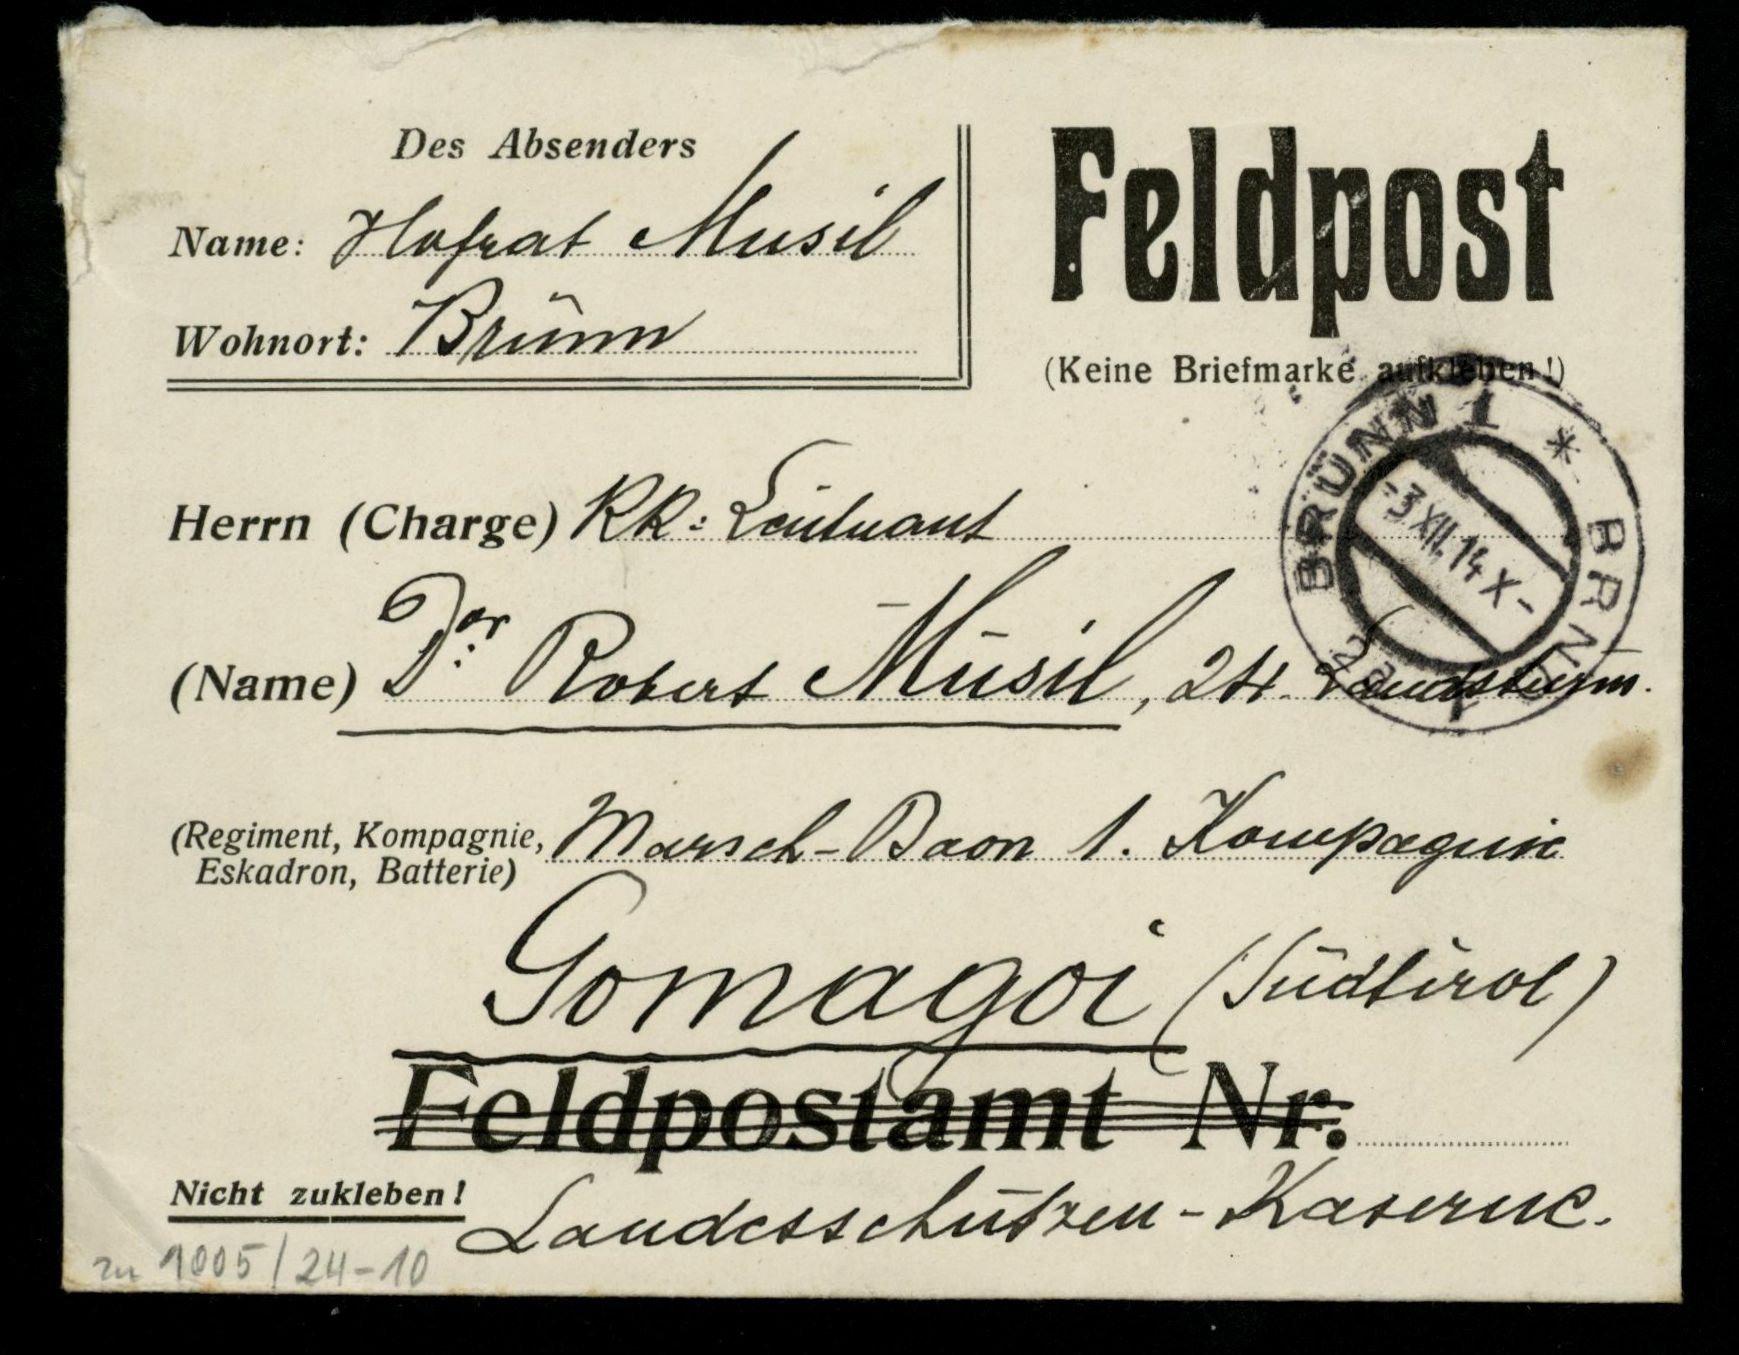 Des Absenders
Name: Hofrat Musil
Wohnort: Brünn
Feldpost
(Keine Briefmarke aufkleben!)
BRÜNN 1 * BRNO 1
-3 XII. 14 X-
2a
Herrn (Charge) KK: Leutnant
(Name) Dor: Robert Musil, 24. Landsturm.
(Regiment, Kompagnie, Marsch-Baon 1. Kompagnie
Eskadron, Batterie)
Gomagoi (Südtirol)
Feldpostamt Nr:
Nicht zukleben!
Landesschützen-Kaserne.
zu 1005/24-10